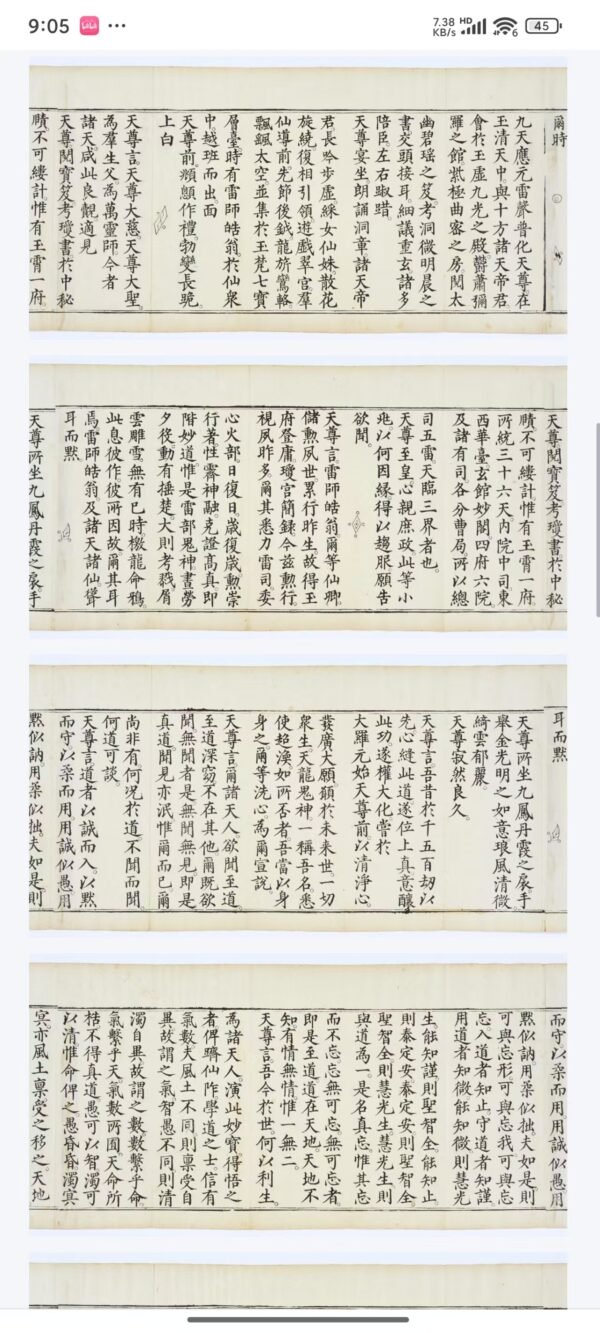 9:05
LaLa
7.38 KB/s
HD
6
45
爾時
九天應元雷聲普化天尊在
玉清天中與十方諸天帝君
會於玉虛九光之殿鬱蕭彌
羅之館紫極曲密之房閱太
幽碧瑶之笈考洞微明晨之
書交頭接耳細議重玄諸多
陪臣左右踧踖
天尊宴坐朗誦洞章諸天帝
君長吟步虛綵女仙姝散花
旋繞復相引領遊戲翠宮羣
仙導前先節後鉞龍旂鸞輅
飄颻太空並集於玉梵七寶
層臺時有雷師皓翁於仙衆
中越班而出面
天尊前頫顖作禮勃變長跪
上白
天尊言天尊大慈天尊大聖
為羣生父為萬靈師今者
諸天咸此良覿適見
天尊閱寶笈考瓊書於中秘
賾不可縷計惟有玉霄一府
天尊閱寶笈考瓊書於中秘
賾不可縷計惟有玉霄一府
所統三十六天內院中司東
西華臺玄館妙閣四府六院
及諸有司各分曹局所以總
司五雷天臨三界者也
天尊至皇心親庶政此等小
兆以何因緣得以趨服願告
欲聞
天尊言雷師皓翁爾等仙卿
儲勲夙世累行昨生故得玉
府登庸瓊宮簡録今茲勲行
視夙昨多爾其悉力雷司委
心火部日復日歲復歲勲崇
行著性霽神融克證高真即
階妙道惟是雷部鬼神晝勞
夕役動有捶楚大則考戮屑
雲雕雪無有已時檄龍命鴉
此息彼作彼所因故爾其耳
焉雷師皓翁及諸天諸仙聳
耳而默
天尊所坐九鳳丹霞之扆手
耳而默
天尊所坐九鳳丹霞之扆手
舉金光明之如意琅風清微
綺雲郁麗
天尊寂然良久
天尊言吾昔於千五百劫以
先心縫此道遂位上真意釀
此功遂權大化嘗於
大羅元始天尊前以清淨心
發廣大願願於未來世一切
衆生天龍鬼神一稱吾名悉
使超渙如所否者吾當以身
身之爾等洗心為爾宣說
天尊言爾諸天人欲聞至道
至道深窈不在其他爾既欲
聞無聞者是無聞無見即是
真道聞見亦泯惟爾而已爾
尚非有何況於道不聞而聞
何道可談
天尊言道者以誠而入以默
而守以柔而用用誠似愚用
默似訥用柔似拙夫如是則
而守以柔而用用誠似愚用
默似訥用柔似拙夫如是則
可與忘形可與忘我可與忘
忘入道者知止守道者知謹
用道者知微能知微則慧光
生能知謹則聖智全能知止
則泰定安泰定安則聖智全
聖智全則慧光生慧光生則
與道為一是名真忘惟其忘
而不忘忘無可忘無可忘者
即是至道道在天地天地不
知有情無情惟一無二
天尊言吾今於世何以利生
為諸天人演此妙寶得悟之
者俾躋仙阼學道之士信有
氣數夫風土不同則禀受自
異故謂之氣智愚不同則清
濁自異故謂之數數繫乎命
氣繫乎天氣數所囿天命所
梏不得真道愚可以智濁可
以清惟命俾之愚昏昏濁冥
冥亦風土禀受之移之天地